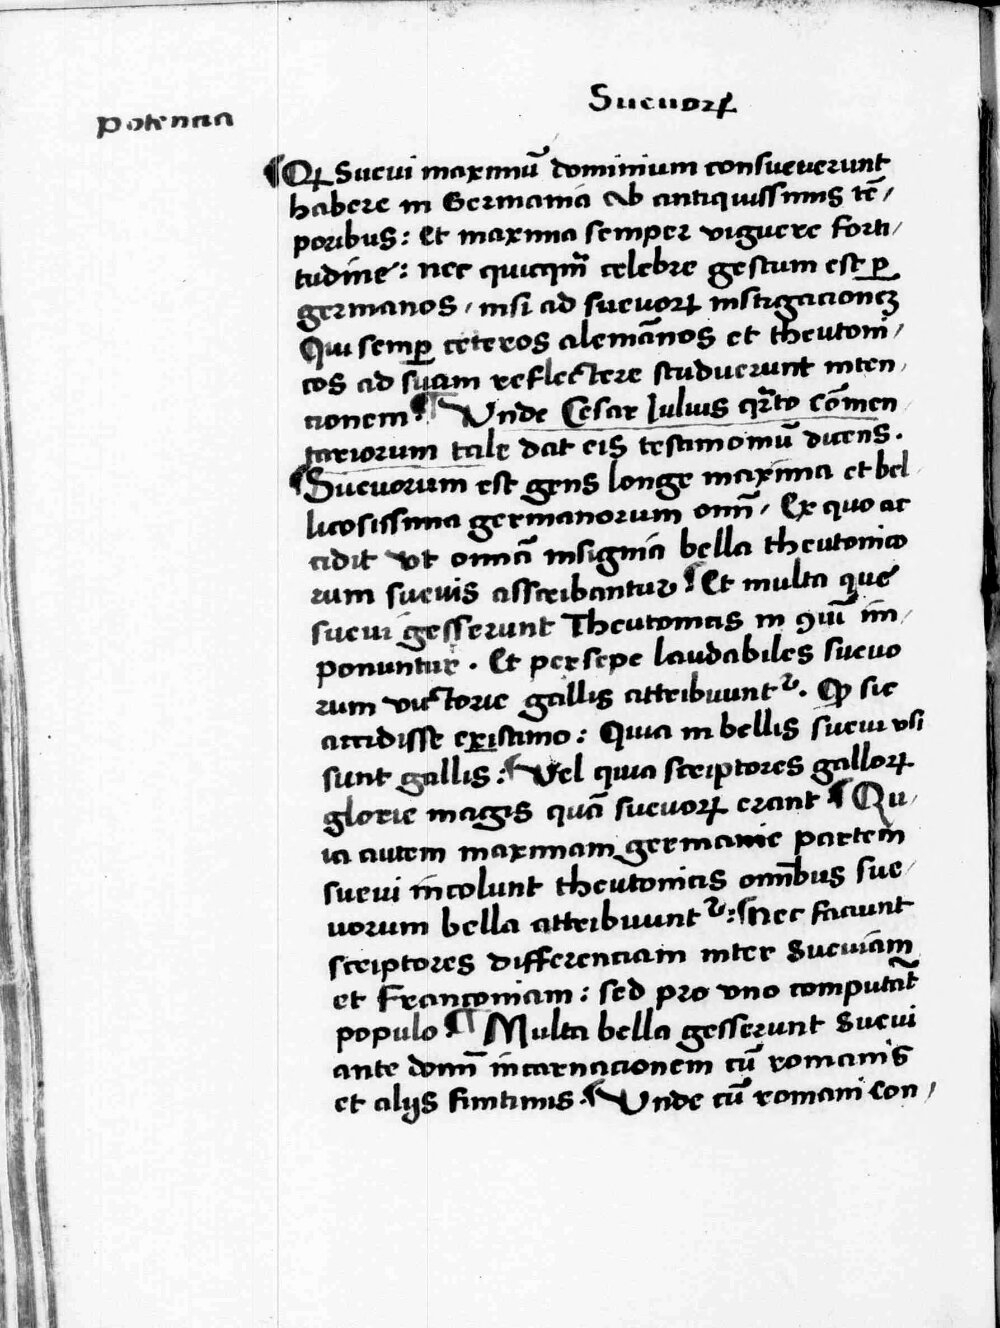 potencia
Sueuoꝝ
¶ Qꝫ Sueui maximū dominium consueuerunt
habere in Germania ab antiquissimis tē/
poribus: Et maxima semper viguere forti/
tudine: nec quicqm̄ celebre gestum est ꝑ
germanos, nisi ad sueuoꝝ instigacionem
Qui semꝑ ceteros alemānos et theutoni/
cos ad suam reflectere studuerunt inten/
cionem ¶ Vnde Cesar Iulius qrto cōmen
tariorum tale dat eis testimoniū dicens.
¶ Sueuorum est gens longe maxima et bel
licosissima germanorum omī, Ex quo ac
cidit vt omnia insignia bella theutonico
rum sueuis asscribantur ¶ Et multa que
sueui gesserunt Theutonicis in ꝯmūi im/
ponuntur. Et persepe laudabiles sueuo
rum victorie gallis attribuuntᷣ. Qꝫ sic
accidisse existimo: Quia in bellis sueui vsi
sunt gallis: ¶ Vel quia scriptores galloꝝ
glorie magis quā sueuoꝝ erant ¶ Qu/
ia autem maximam germanie partem
sueui incolunt theutonicis omībus sue/
uorum bella attribuuntᷣ: ¶ Nec faciunt
scriptores differenciam inter Sueuiam
et Franconiam: sed pro vno computāt
populo ¶ Multa bella gesserunt Sueui
ante domī incarnacionem cū romanis
et alijs finitimis. ¶ Vnde cū romani con/